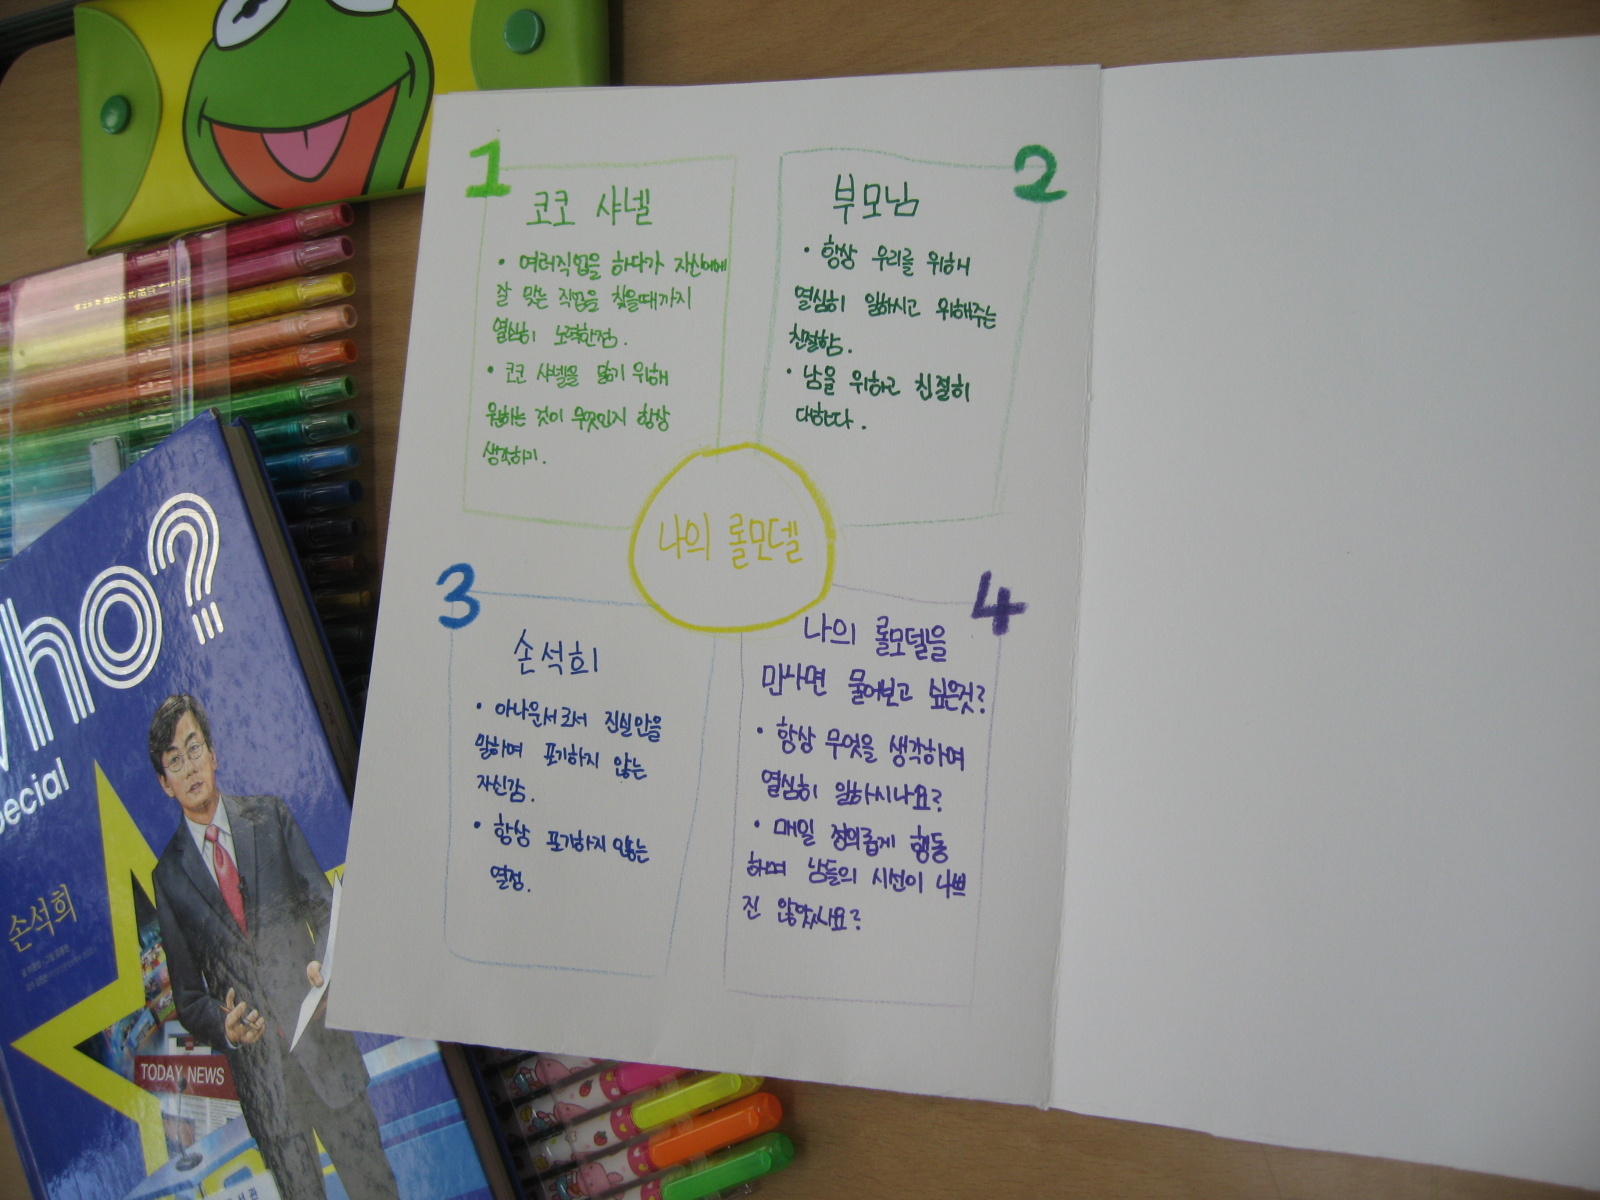 1
코코 샤넬
• 여러직업을 하다가 자신에게
잘 맞는 직업을 찾을때까지
열심히 노력한점.
• 코코 샤넬을 닮기 위해
원하는 것이 무엇인지 항상
생각하기.
2
부모님
• 항상 우리를 위해
열심히 일하시고 위해주는
친절함.
• 남을 위하고 친절히
대한다.
나의 롤모델
3
손석희
• 아나운서로서 진실만을
말하며 포기하지 않는
자신감.
• 항상 포기하지 않는
열정.
4
나의 롤모델을
만나면 물어보고 싶은것?
• 항상 무엇을 생각하며
열심히 일하시나요?
• 매일 정의롭게 행동
하며 남들의 시선이 나쁘
진 않았나요?
Who?
Special
손석희
TODAY NEWS